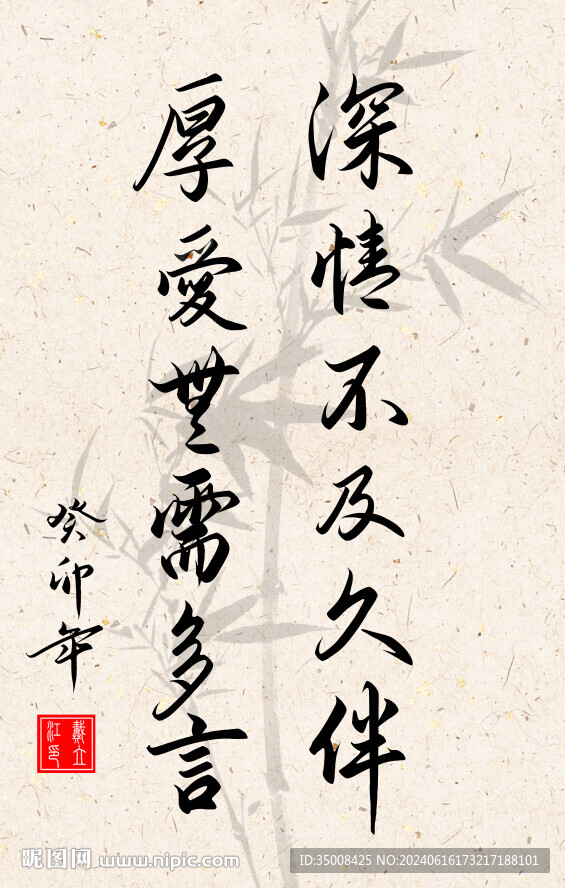 深情不及久伴
厚愛無需多言
癸卯年
戴立江印
昵图网 www.nipic.com
ID:35008425 NO:20240616173217188101